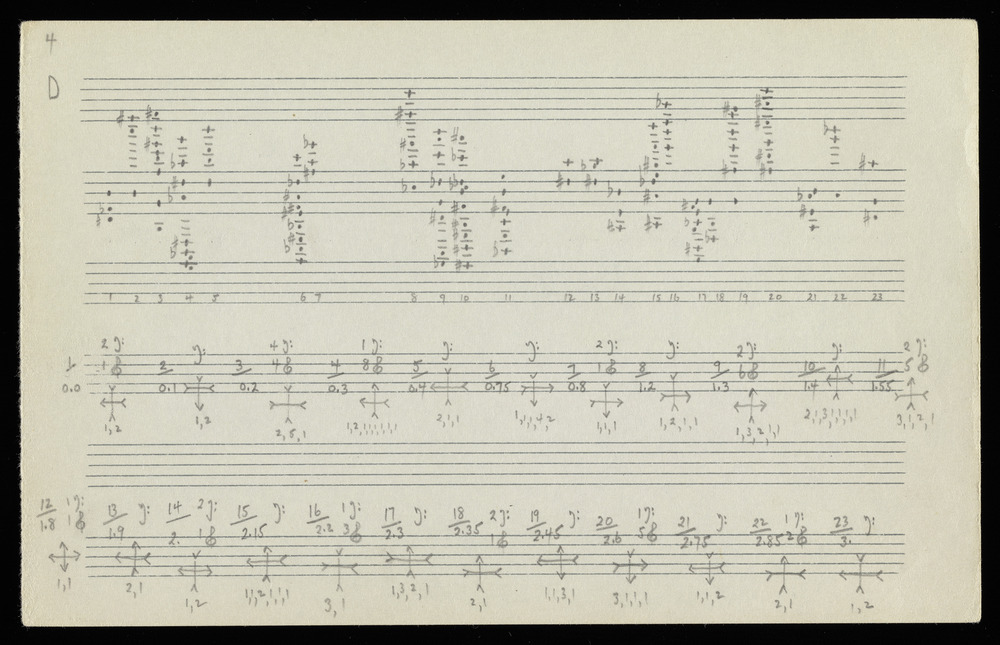 4
D
1 2 3 4 5 6 7 8 9 10 11 12 13 14 15 16 17 18 19 20 21 22 23
2 4 1 2 2 2
1 1 2 3 4 8 4 8 5 6 7 1 8 9 6 10 11 5
0.0 0.1 0.2 0.3 0.4 0.75 0.8 1.2 1.3 1.4 1.55
1,2 1,2 2,5,1 1,2,1,1,1,1,1 2,1,1 1,1,1,4,2 1,1,1 1,2,1,1 1,3,2,1,1 2,1,3,1,1,1,1 3,1,2,1
12 1 13 14 2 15 16 1 17 18 2 19 20 1 21 22 1 23
1.8 1 1.9 2. 1 2.15 2.2 3 2.3 2.35 1 2.45 2.6 5 2.75 2.85 2 3.
1,1 2,1 1,2 1,1,2,1,1,1 3,1 1,3,2,1 2,1 1,1,3,1 3,1,1,1 1,1,2 2,1 1,2